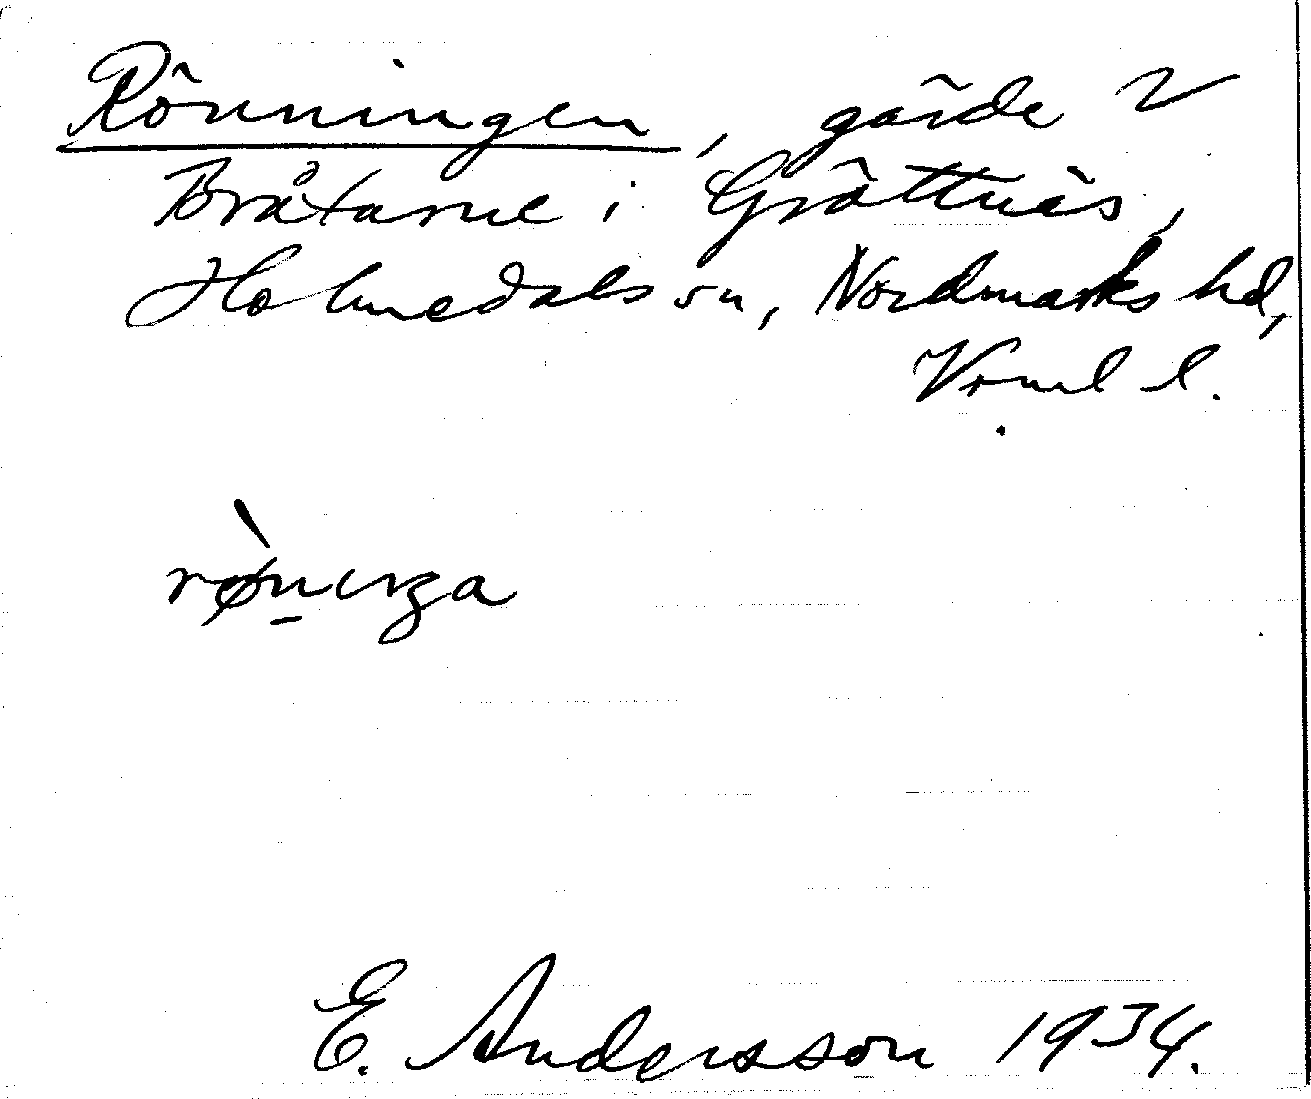 Rönningen, gärde V
Bråtarne i Gröttnäs,
Holmedals sn, Nordmarks hd,
Vrml l.
rø̀nıŋa
E. Andersson 1934.